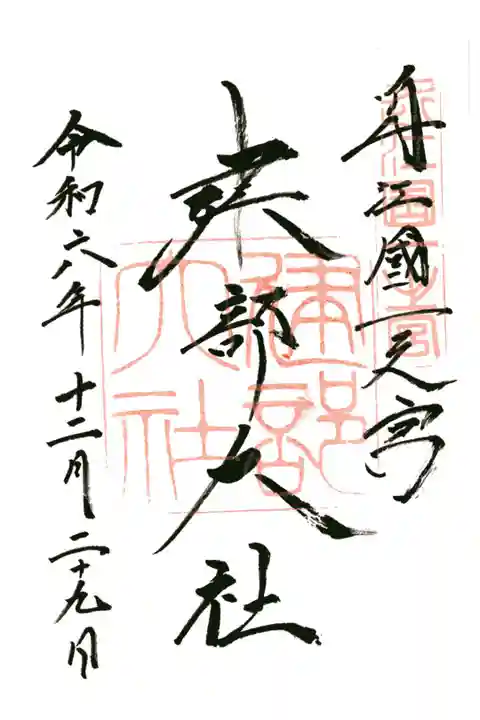 近江國一之宮
建部大社
令和六年十二月二十九日
近江国一之宮
建部大社